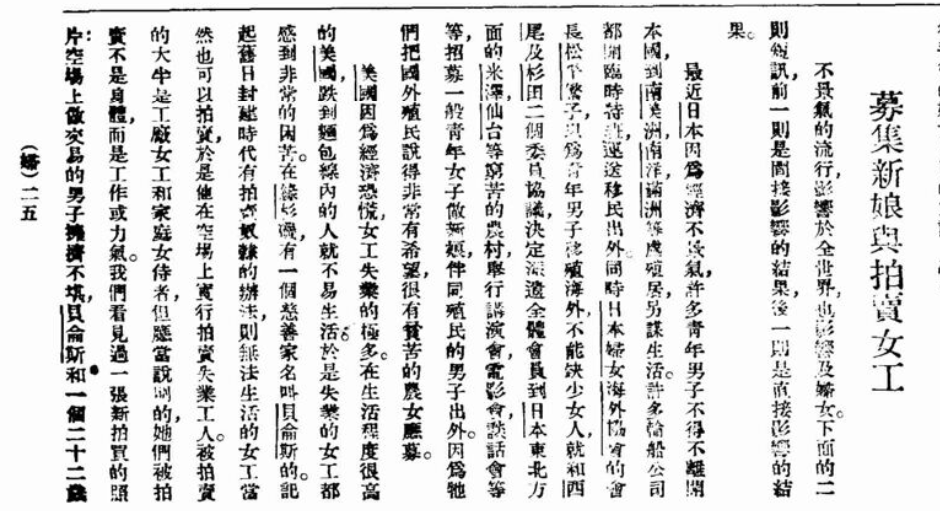 募集新娘與拍賣女工
不景氣的流行，影響於全世界，也影響及婦女。下面的二
則短訊，前一則是間接影響的結果，後一則是直接影響的結
果。
最近日本因爲經濟不景氣，許多青年男子不得不離開
本國，到南美洲，南洋，滿洲等處殖居，另謀生活。許多輪船公司
都開臨時特班，運送移民出外。同時日本婦女海外協會的會
長松平繁子以爲青年男子移殖海外，不能缺少女人，就和西
尾及杉田二個委員協議，決定派遣全體會員到日本東北方
面的米澤，仙台等窮苦的農村，舉行講演會，電影會，談話會等
等，招募一般青年女子做新娘，伴同殖民的男子出外。因爲牠
們把國外殖民說得非常有希望，很有貧苦的農女應募。
美國因爲經濟恐慌，女工失業的極多。在生活程度很高
的美國，跌到麵包線內的人就不易生活。於是失業的女工都
感到非常的困苦。在有一個慈善家名叫貝侖斯的。記
起舊日封建時代有拍賣奴隸的辦法，則無法生活的女工當
然也可以拍賣，於是他在空場上實行拍賣失業工人。被拍賣
的大半是工廠女工和家庭女侍者，但應當說明的，她們被拍
賣不是身體，而是工作或力氣。我們看見過一張新拍買的照
片：空場上做交易的男子擁擠不堪，貝侖斯和一個二十二歲
（婦）二五